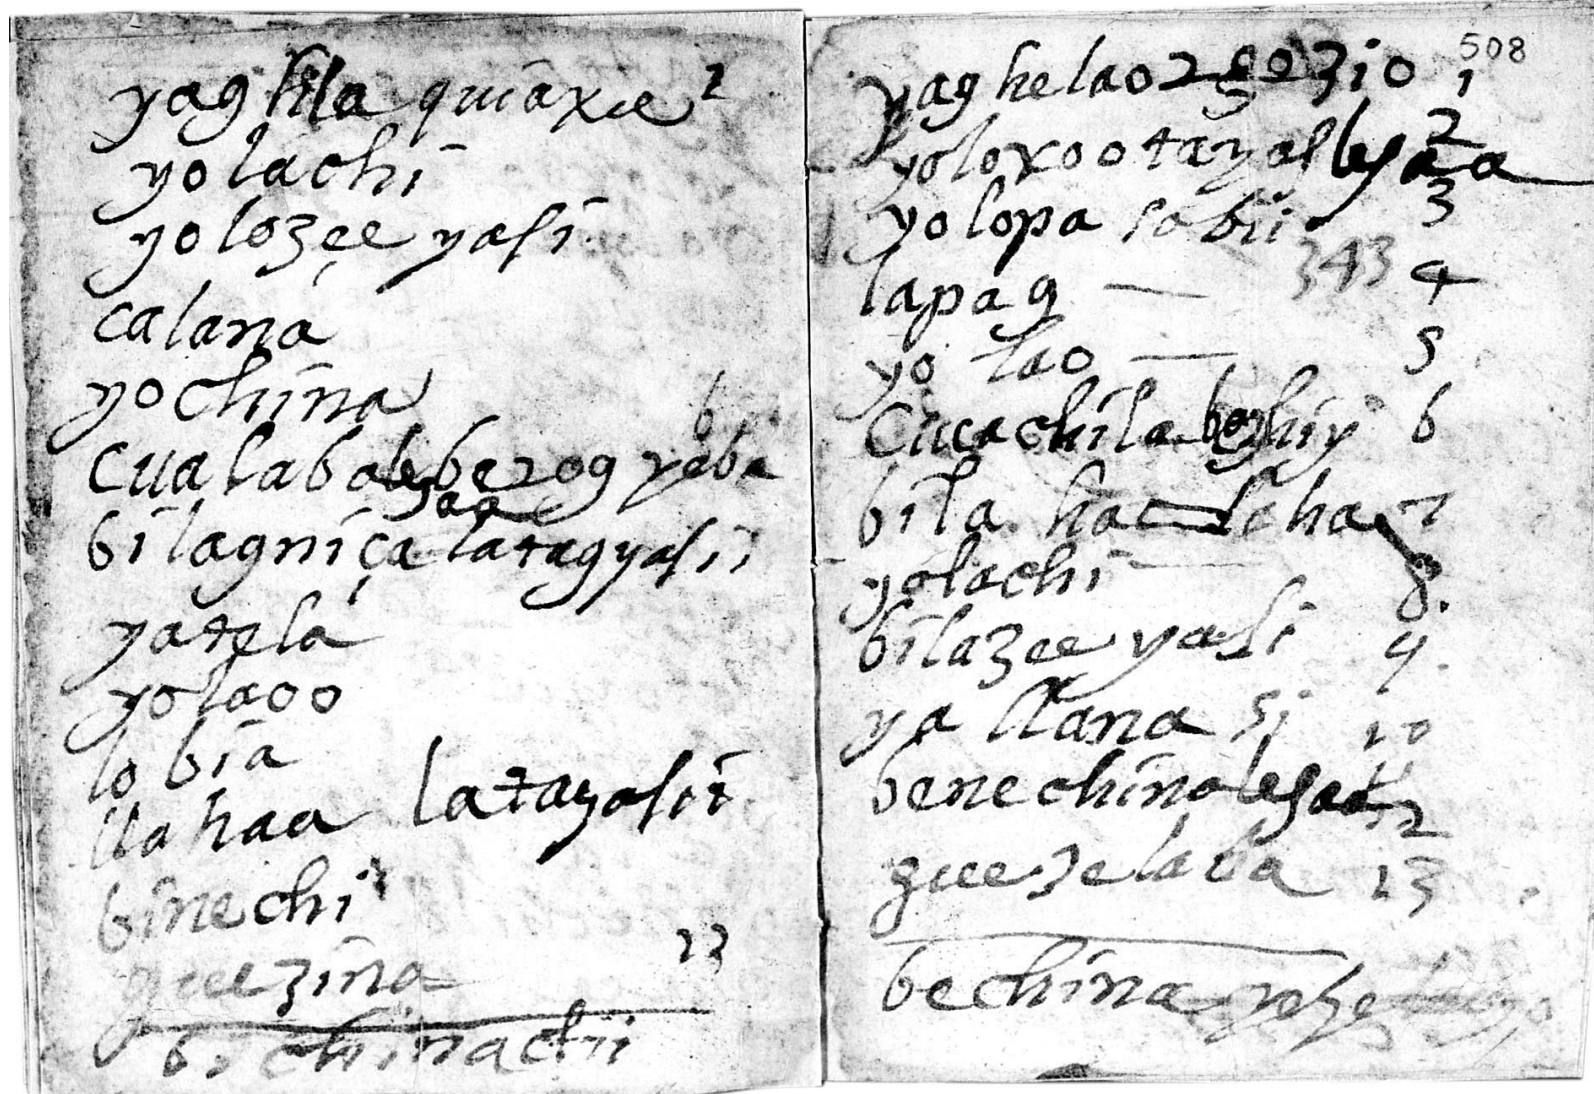 yag hila quiaxue 1
yolachi
yolozee yasi
calana
yochina
Cualabalesaa be rog yeba 6
bilagniça latagyasii
yatela
yolaoo
lobia
llahaa latayasii
binechi
queezina 13
bichinachii
508
yaghelao zio 1
yoloxoo tayas lesaa 2
yolopa sabii 3
343
lapag 4
yo lao 5
Cuca chila 6
bila ha cha 7
yolachi 8
bilazee yasi 9
ya llana si 10
benechina lesaa 12
quee lába 13
bechina